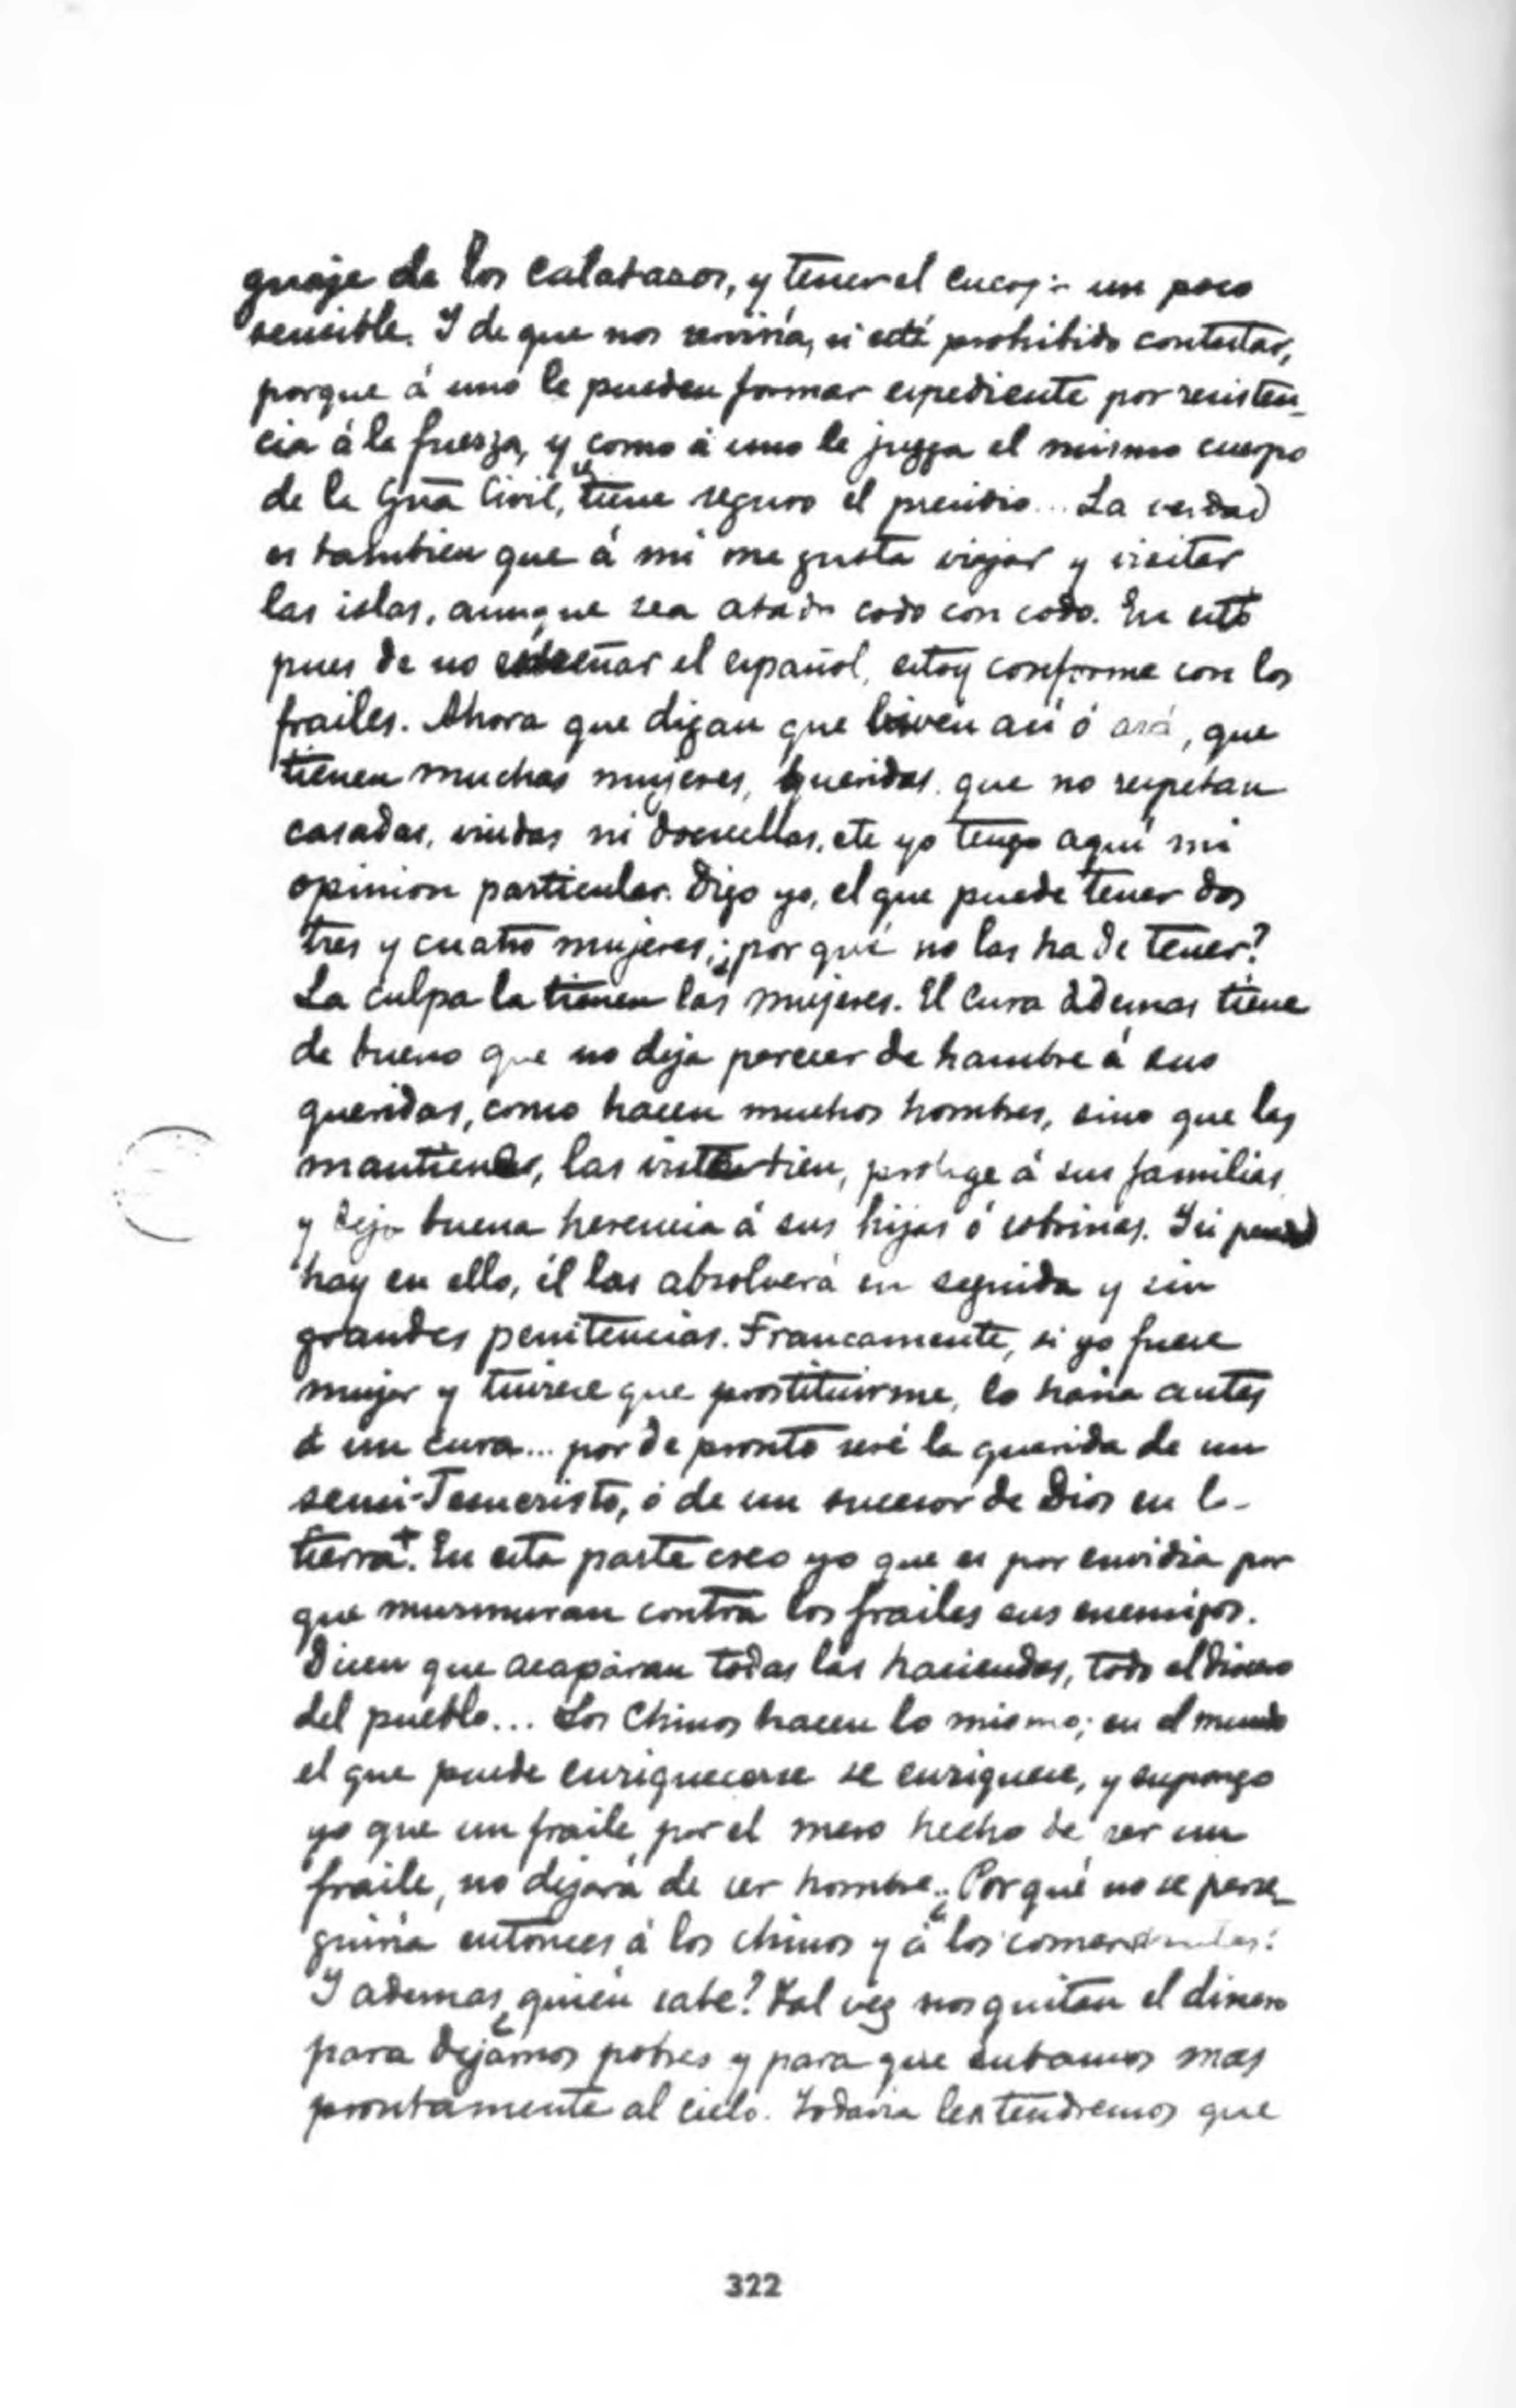 guaje de los calabazos, y tener el cuerpo un poco
sensible. Y de que nos serviría, si está prohibido contestar,
porque á uno le pueden formar espediente por resisten-
cia á la fuerza, y como á uno le juzga el mismo cuerpo
de la Gña Civil, se tiene seguro el presidio... La verdad
es tambien que á mi me gusta viajar y visitar
las islas, aunque sea atado codo con codo. En esto
pues de no enseñar el español, estoy conforme con los
frailes. Ahora que digan que viven así ó asá, que
tienen muchas mujeres, queridas, que no respetan
casadas, viudas ni doncellas, etc yo tengo aquí mi
opinion particular. Digo yo, el que puede tener dos
tres y cuatro mujeres, ¿por qué no las ha de tener?
La culpa la tienen las mujeres. El Cura ademas tiene
de bueno que no deja perecer de hambre á sus
queridas, como hacen muchos hombres, sino que las
mantiene, las viste bien, protege á sus familias
y deja buena herencia á sus hijas ó sobrinas. Y si
hay en ello, él las absolverá en seguida y sin
grandes penitencias. Francamente, si yo fuese
mujer y tuviese que prostituirme, lo haría antes
á un cura... por de pronto seré la querida de un
semi-Jesucristo, ó de un sucesor de Dios en la
tierra+. En esta parte creo yo que es por envidia por
que murmuran contra los frailes sus enemigos.
Dicen que acaparan todas las haciendas, todo el dinero
del pueblo... Los Chinos hacen lo mismo; en el mundo
el que puede enriquecerse se enriquece, y supongo
yo que un fraile por el mero hecho de ser un
fraile, no dejará de ser hombre. ¿Porqué no se perse-
guiría entonces á los chinos y á los
Y ademas ¿quién sabe? Tal vez nos quitan el dinero
para dejarnos pobres y para que subamos mas
prontamente al cielo. Todavia les tendremos que
322